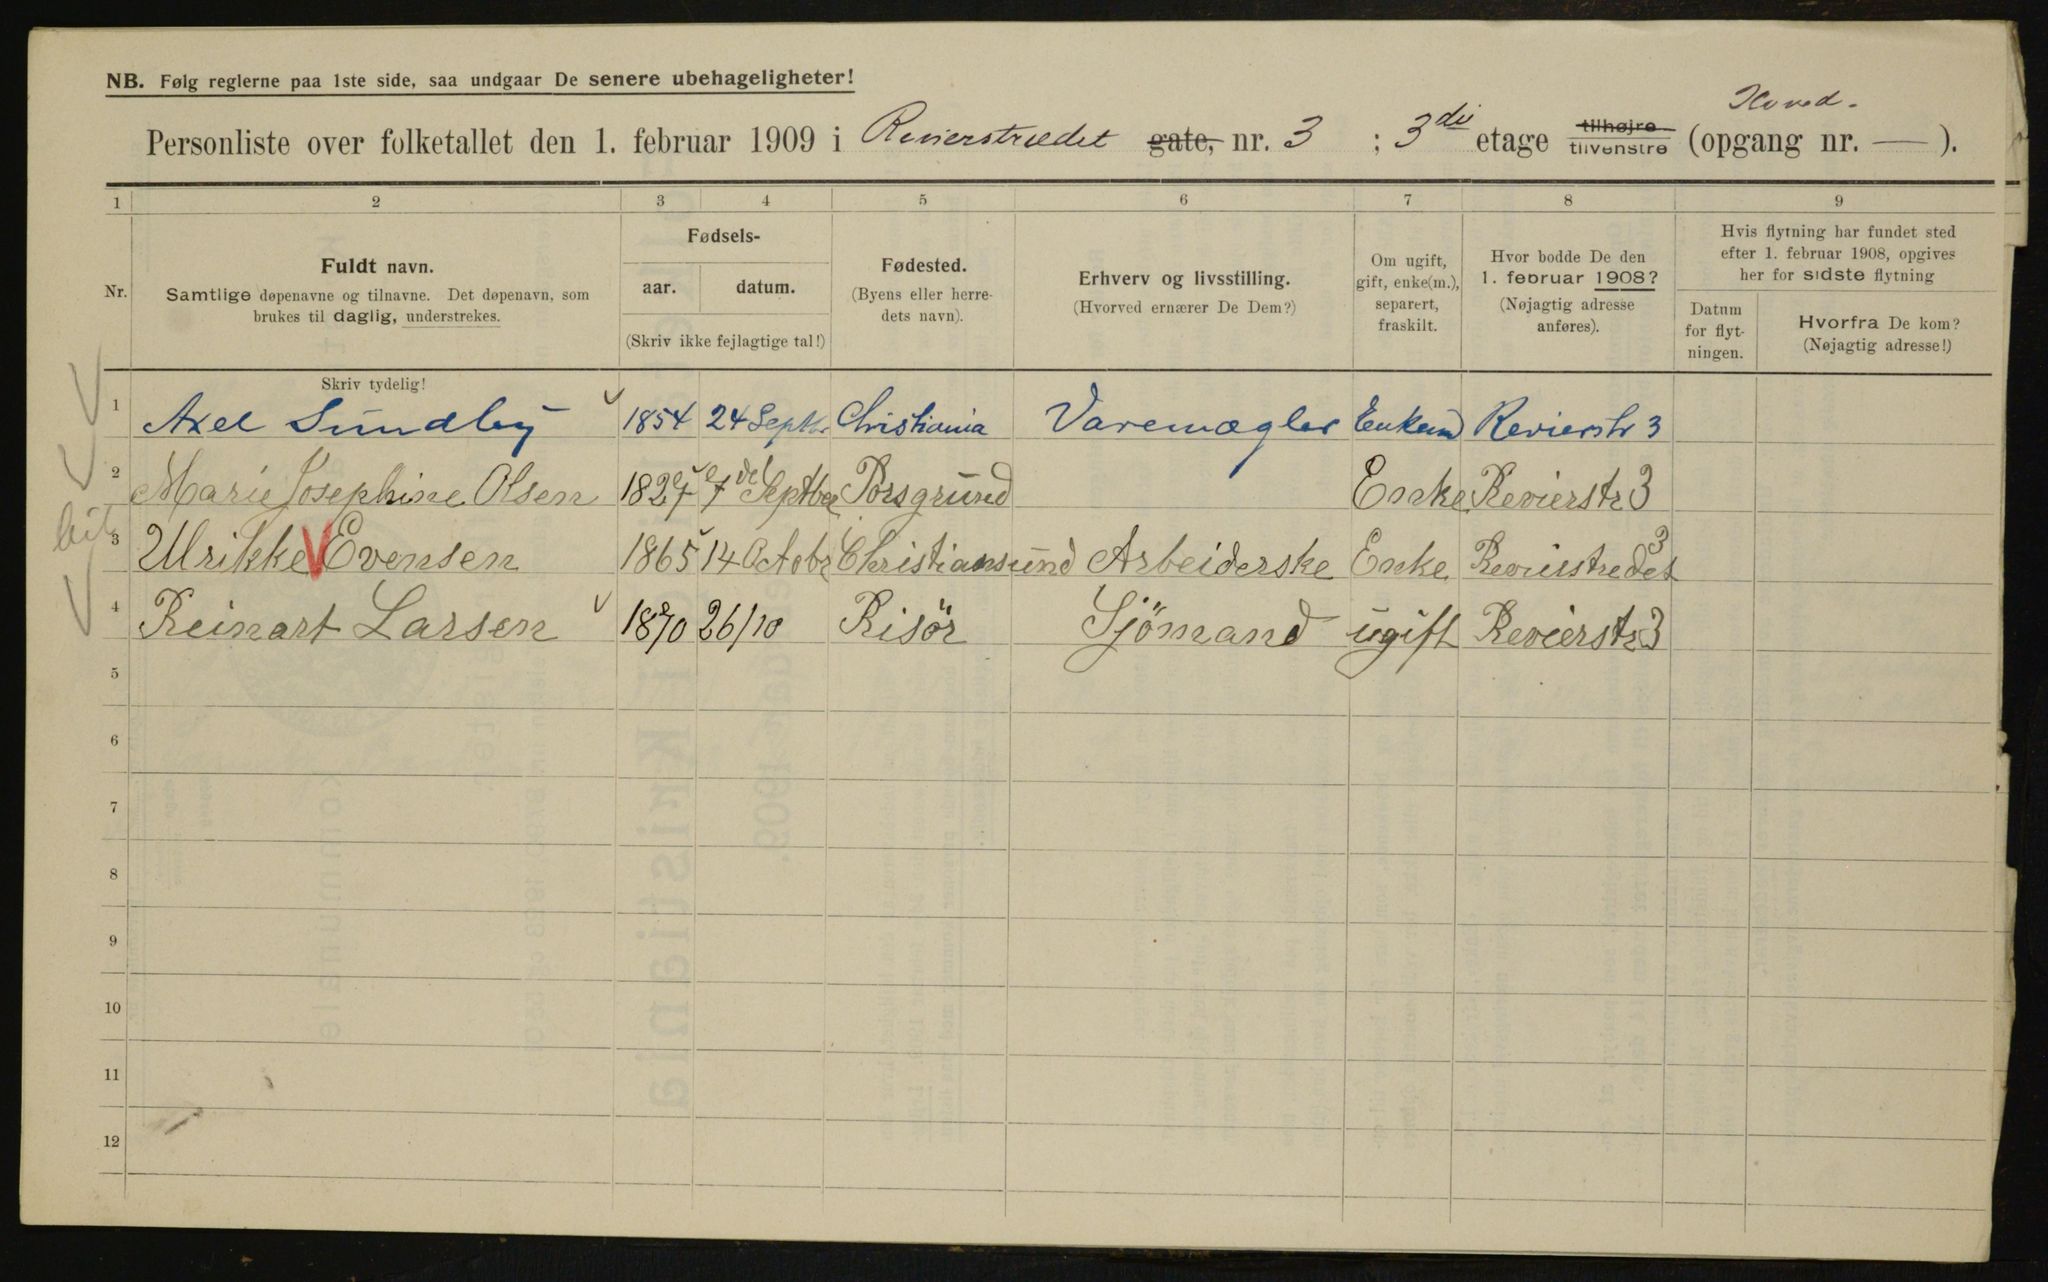 NB. Følg reglerne paa 1ste side, saa undgaar De senere ubehageligheter!
Hoved.
Personliste over folketallet den 1. februar 1909 i Revierstrædet gate, nr. 3 ; 3die etage tilhøjre tilvenstre (opgang nr. — ).
1 2 3 4 5 6 7 8 9
Nr. Fuldt navn. Samtlige døpenavne og tilnavne. Det døpenavn, som brukes til daglig, understrekes. Skriv tydelig!
Fødsels- aar. datum. (Skriv ikke fejlagtige tal!)
Fødested. (Byens eller herredets navn).
Erhverv og livsstilling. (Hvorved ernærer De Dem?)
Om ugift, gift, enke(m.), separert, fraskilt.
Hvor bodde De den 1. februar 1908? (Nøjagtig adresse anføres).
Hvis flytning har fundet sted efter 1. februar 1908, opgives her for sidste flytning
Datum for flytningen. Hvorfra De kom? (Nøjagtig adresse!)
1 Axel Sundby 1854 24 Septbr Christiania Varemægler Enkem Revierstr 3
2 Marie Josephine Olsen 1827 7de Septber Porsgrund Enke Revierstr 3
3 Ulrikke Evensen 1865 14 Octobr Christiansund Arbeiderske Enke Revierstredet 3
4 Reinart Larsen 1870 26/10 Risör Sjömand ugift Revierstr 3
5
6
7
8
9
10
11
12